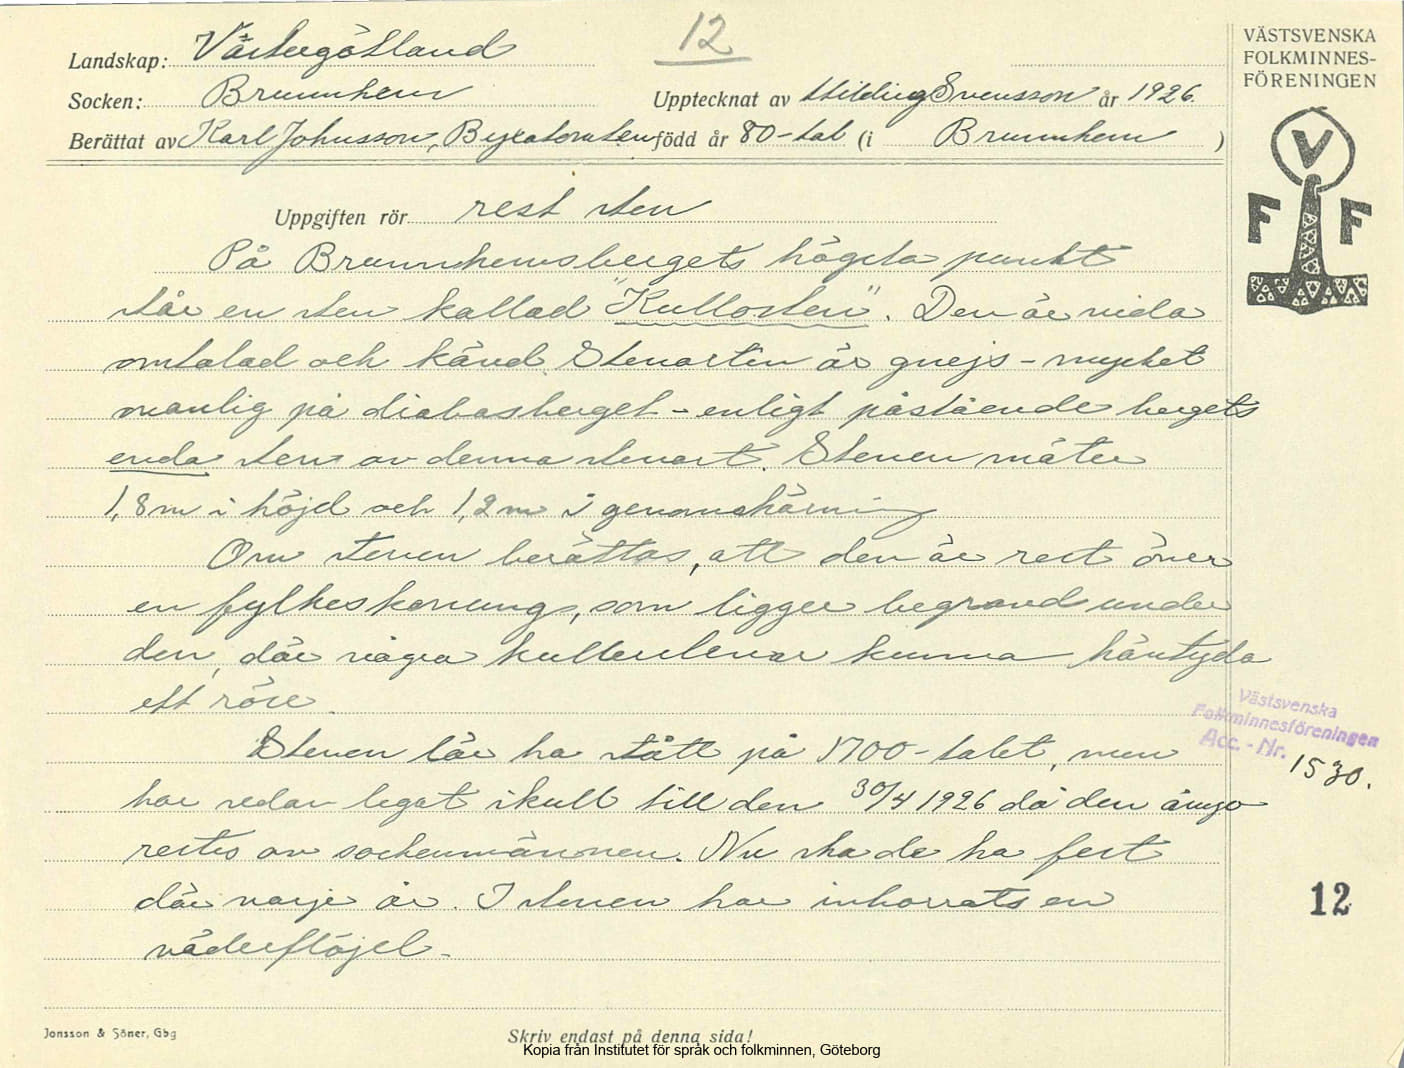 12
Landskap: Västergötland
Socken: Brunnhem
Upptecknat av Hilding Svensson år 1926.
Berättat av Karl Johnsson, född år 80-tal (i Brunnhem)
VÄSTSVENSKA
FOLKMINNES-
FÖRENINGEN
V
F F
Uppgiften rör rest sten
På Brunnhemsbergets högsta punkt
står en sten kallad "Kullosten". Den är vida
omtalad och känd. Stenarten är gnejs - mycket
ovanlig på diabasberget - enligt påstående bergets
enda sten av denna stenart. Stenen mäter
1,8 m i höjd och 1,2 m i genomskärning
Om stenen berättas, att den är rest över
en fylkeskonung, som ligger begravd under
den, där några kullerstenar kunna häntyda
ett röse.
Stenen lär ha stått på 1700-talet, men
har sedan legat ikull till den 30/4 1926 då den ånyo
restes av sockenmännen. Nu ska de ha fest
där varje år. I stenen har inborrats en
väderflöjel.
Västsvenska
Folkminnesföreningen
Acc. - Nr. 1530.
12
Jonsson & Söner, Gbg
Skriv endast på denna sida!
Kopia från Institutet för språk och folkminnen, Göteborg